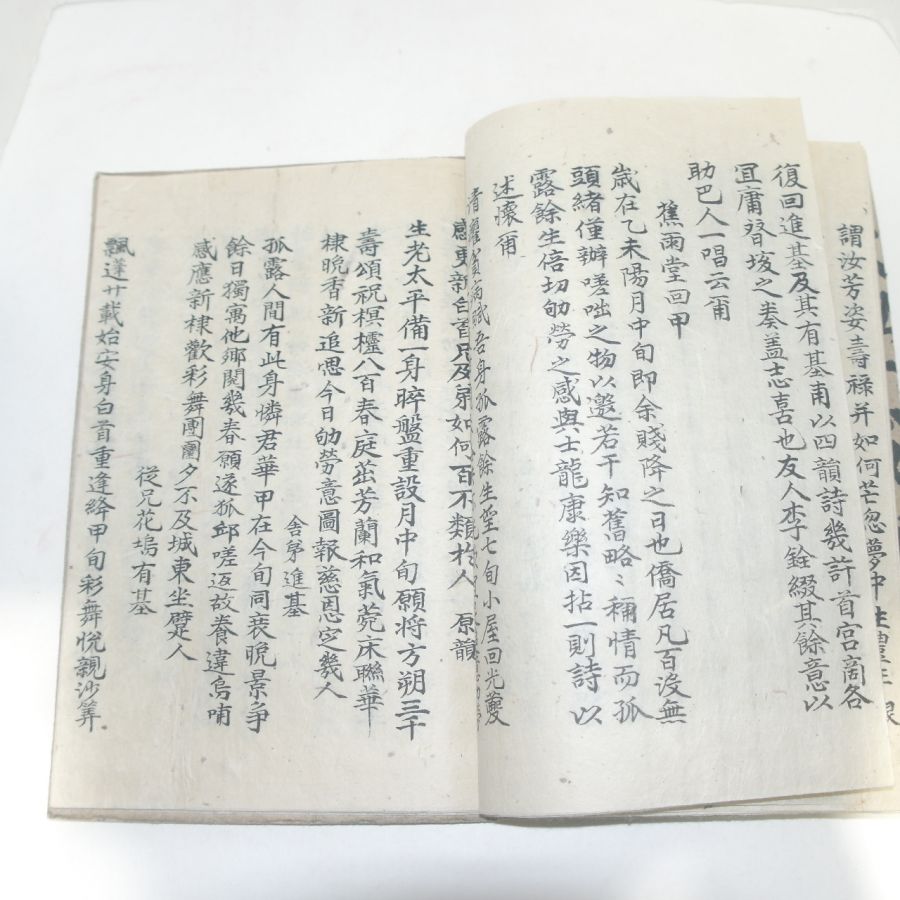 謂汝芳姿壽祿并如何芒忽夢中
復回進基及其有基甫以四韻詩幾許首宮商各
宜庸替垓之奏盖志喜也友人李銓綴其餘意以
助巴人一唱云爾
蕉雨堂回甲
歲在乙未陽月中旬即余賤降之日也僑居凡百沒無
頭緖僅辦嗟咄之物以邀若干知舊略〻稱情而孤
露餘生倍切劬勞之感與士龍康樂因拈一則詩以
述懷爾
貧病 吾身孤露餘生 七旬小屋回光
感更新白首 如何百不類於人 原韻
生老太平備一身晬盤重設月中旬願將方朔三千
壽頌祝椇欞八百春庭茁芳蘭和氣菀床聯華
棣晩香新追思今日劬勞意圖報慈恩定幾人
舍弟進基
孤露人間有此身憐君華甲在今旬同衰晩景爭
餘日獨寓他鄕閱幾春願遂狐邱嗟返故養違烏哺
感應新棣歡彩舞團圝夕不及城東坐躄人
從兄花塢有基
飄蓬廿載始安身白首重逢絳甲旬彩舞悅親沙筭